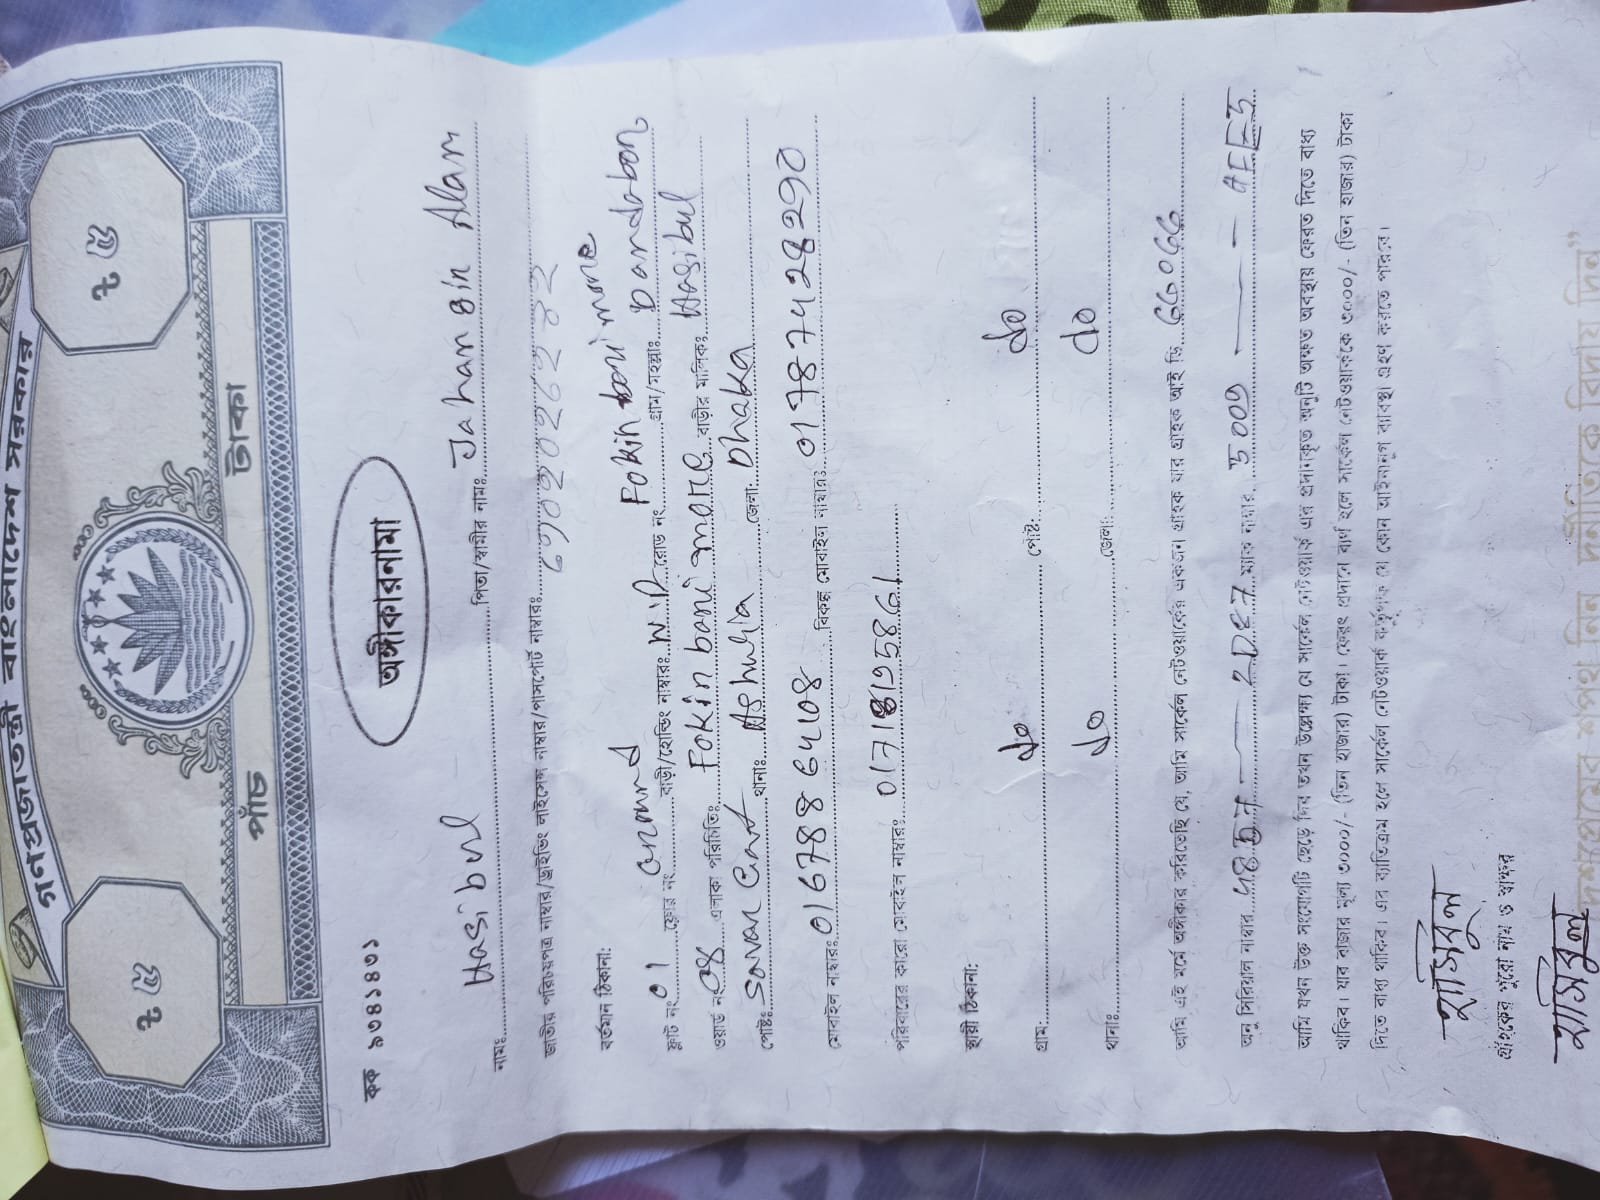 গণপ্রজাতন্ত্রী বাংলাদেশ সরকার
৳ ৫
৳ ৫
পাঁচ টাকা
কক ৯৩৪১৪৩১
অঙ্গীকারনামা
নামঃ Hasibul পিতা/স্বামীর নামঃ Jahangin Alam
জাতীয় পরিচয়পত্র নাম্বার/ড্রাইভিং লাইসেন্স নাম্বার/পাসপোর্ট নাম্বারঃ
বর্তমান ঠিকানা:
ফ্লাট নং 01 ফ্লোর নং বাড়ী/হোল্ডিং নাম্বারঃ রোড নং Fokin bani more গ্রাম/মহল্লাঃ Dandabon
ওয়ার্ড নং 08 এলাকা পরিচিতিঃ Fokin bani more বাড়ীর মালিকঃ Hasibul
পোষ্টঃ Savan Cant থানাঃ Ashulia জেলা: Dhaka
মোবাইল নাম্বারঃ বিকল্প মোবাইল নাম্বারঃ
পরিবারের কারো মোবাইল নাম্বারঃ
স্থায়ী ঠিকানা:
গ্রাম: do পোষ্ট: do
থানাঃ do জেলা: do
আমি এই মর্মে অঙ্গীকার করিতেছি যে, আমি সার্কেল নেটওয়ার্কের একজন গ্রাহক যার গ্রাহক আই ডি
অনু সিরিয়াল নাম্বার ম্যাক নাম্বার
আমি যখন উক্ত সংযোগটি ছেড়ে দিব তখন উল্লেখ্য যে সার্কেল নেটওয়ার্ক এর প্রদানকৃত অনুটি অক্ষত অবস্থায় ফেরত দিতে বাধ্য
থাকিব। যার বাজার মূল্য ৩০০০/- (তিন হাজার) টাকা। ফেরৎ প্রদানে ব্যর্থ হলে সার্কেল নেটওয়ার্ককে ৩০০০/- (তিন হাজার) টাকা
দিতে বাধ্য থাকিব। এর ব্যতিক্রম হলে সার্কেল নেটওয়ার্ক কর্তৃপক্ষ যে কোন আইনানুগ ব্যবস্থা গ্রহন করতে পারবে।
হাসিবুল
গ্রাহকের পুরো নাম ও স্বাক্ষর
হাসিবুল
শপথ নিন দুর্নীতিকে বিদায় দিন”